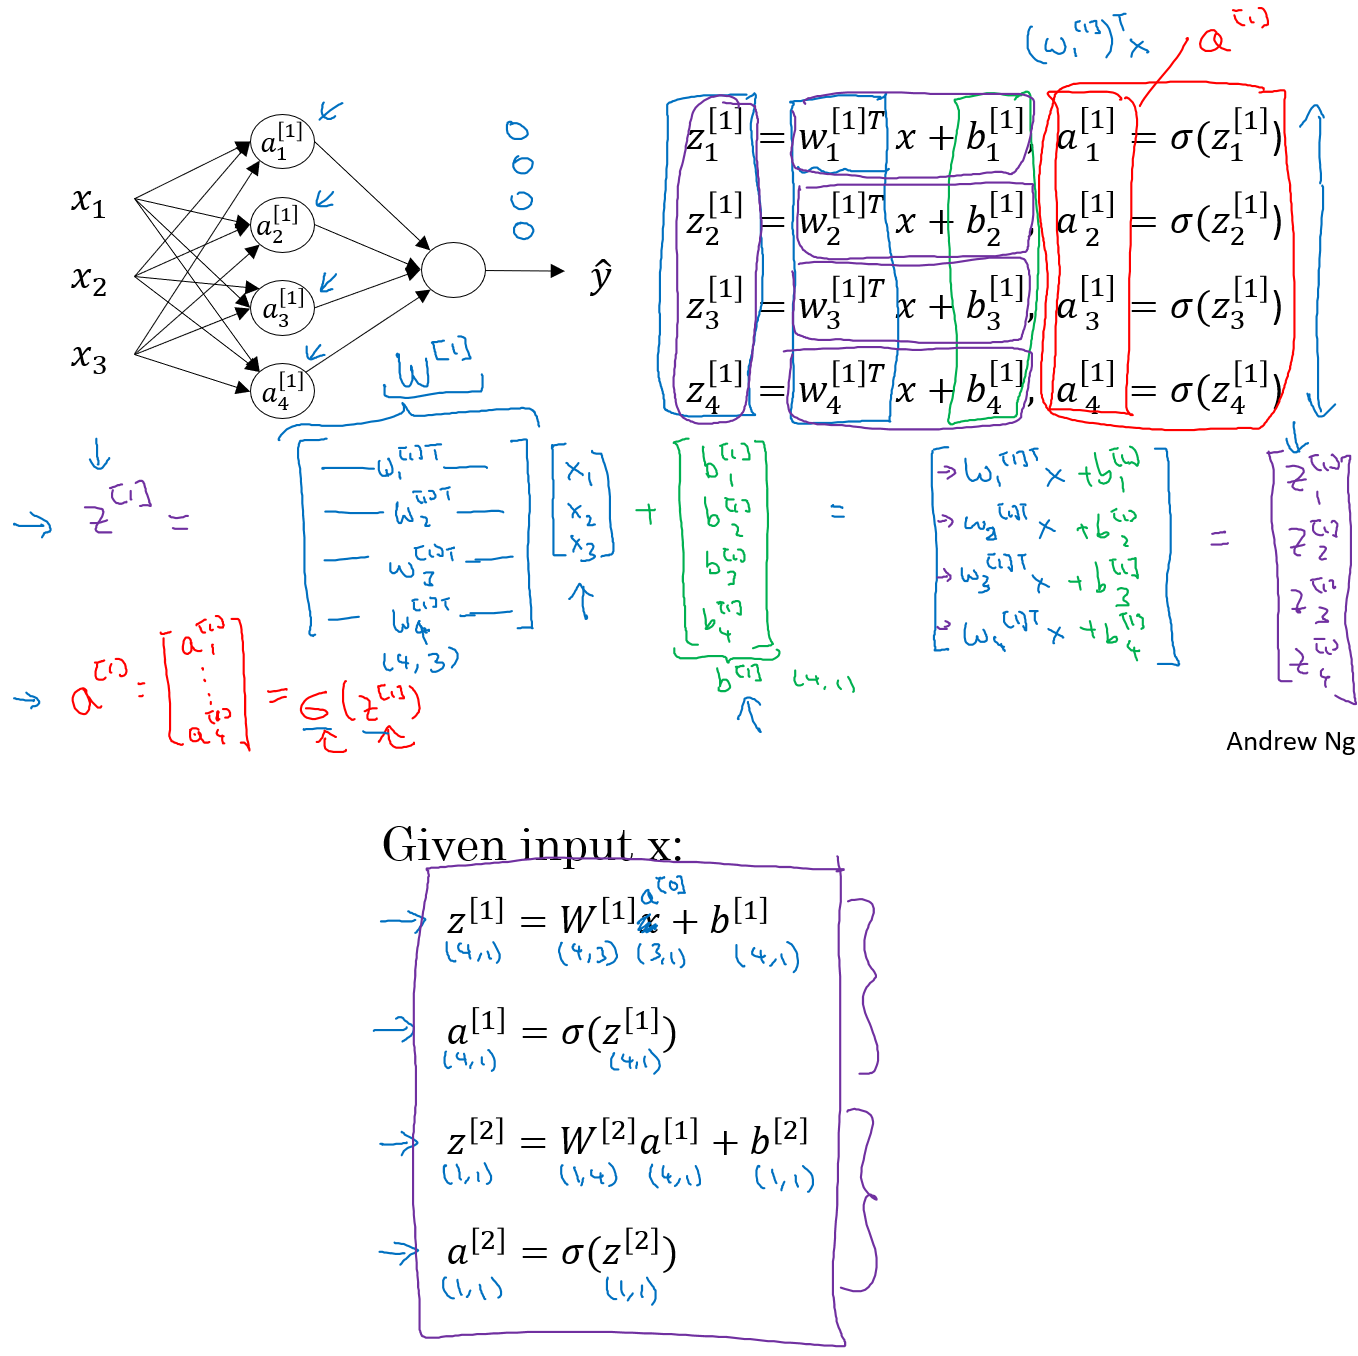 (w₁^[1])^T x a^[1]
a₁^[1]
a₂^[1]
a₃^[1]
a₄^[1]
x₁
x₂
x₃
ŷ
z₁^[1] = w₁^[1]T x + b₁^[1], a₁^[1] = σ(z₁^[1])
z₂^[1] = w₂^[1]T x + b₂^[1], a₂^[1] = σ(z₂^[1])
z₃^[1] = w₃^[1]T x + b₃^[1], a₃^[1] = σ(z₃^[1])
z₄^[1] = w₄^[1]T x + b₄^[1], a₄^[1] = σ(z₄^[1])
W^[1]
→ z^[1] =
w₁^[1]T
w₂^[1]T
w₃^[1]T
w₄^[1]T
(4,3)
x₁
x₂
x₃
+
b₁^[1]
b₂^[1]
b₃^[1]
b₄^[1]
b^[1] (4,1)
=
→ w₁^[1]T x + b₁^[1]
→ w₂^[1]T x + b₂^[1]
→ w₃^[1]T x + b₃^[1]
→ w₄^[1]T x + b₄^[1]
=
z₁^[1]
z₂^[1]
z₃^[1]
z₄^[1]
→ a^[1] = [a₁^[1] ⋮ a₄^[1]] = σ(z^[1])
Andrew Ng
Given input x:
a^[0]
→ z^[1] = W^[1]x + b^[1]
(4,1) (4,3) (3,1) (4,1)
→ a^[1] = σ(z^[1])
(4,1) (4,1)
→ z^[2] = W^[2]a^[1] + b^[2]
(1,1) (1,4) (4,1) (1,1)
→ a^[2] = σ(z^[2])
(1,1) (1,1)